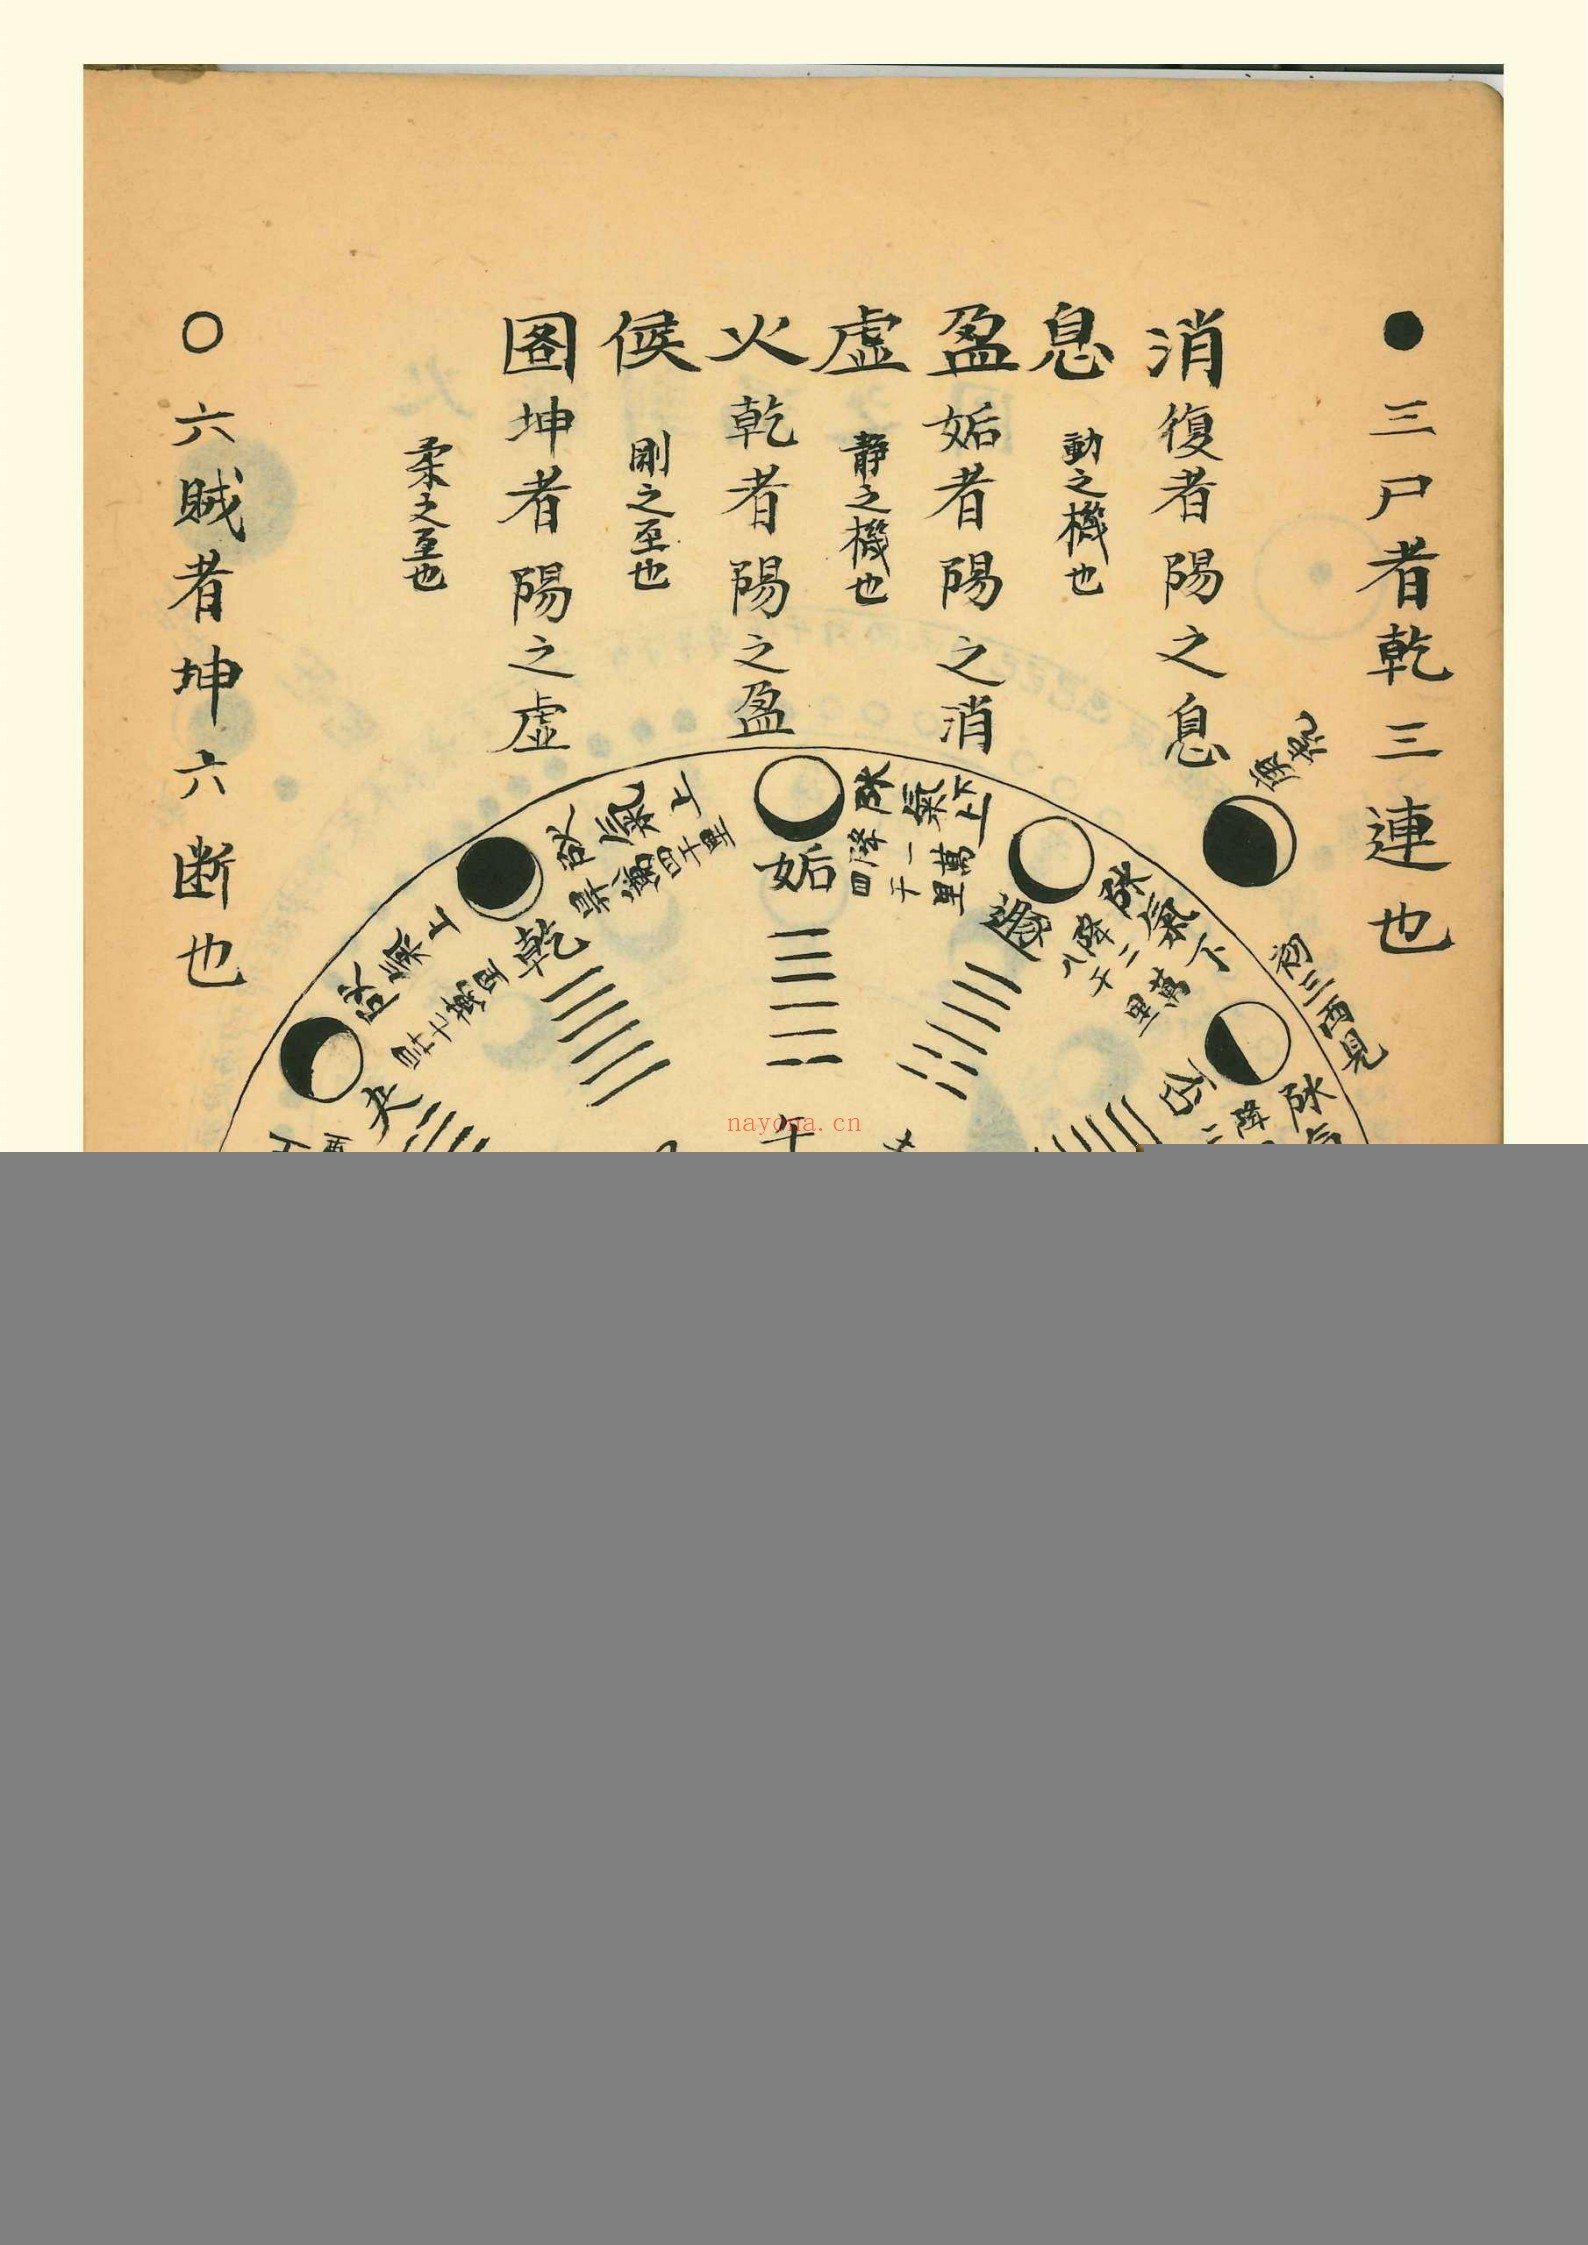 ●三尸者乾三連也
消息盈虚火候图
復者陽之息
動之機也
姤者陽之消
静之機也
乾者陽之盈
剛之至也
坤者陽之虚
柔之至也
○六賊者坤六断也
初三西見
氣下
降二萬
八千里
遯
氣
降一萬
四千里
姤
氣上
四千里
乾
氣上
夬
午
nayona.cn